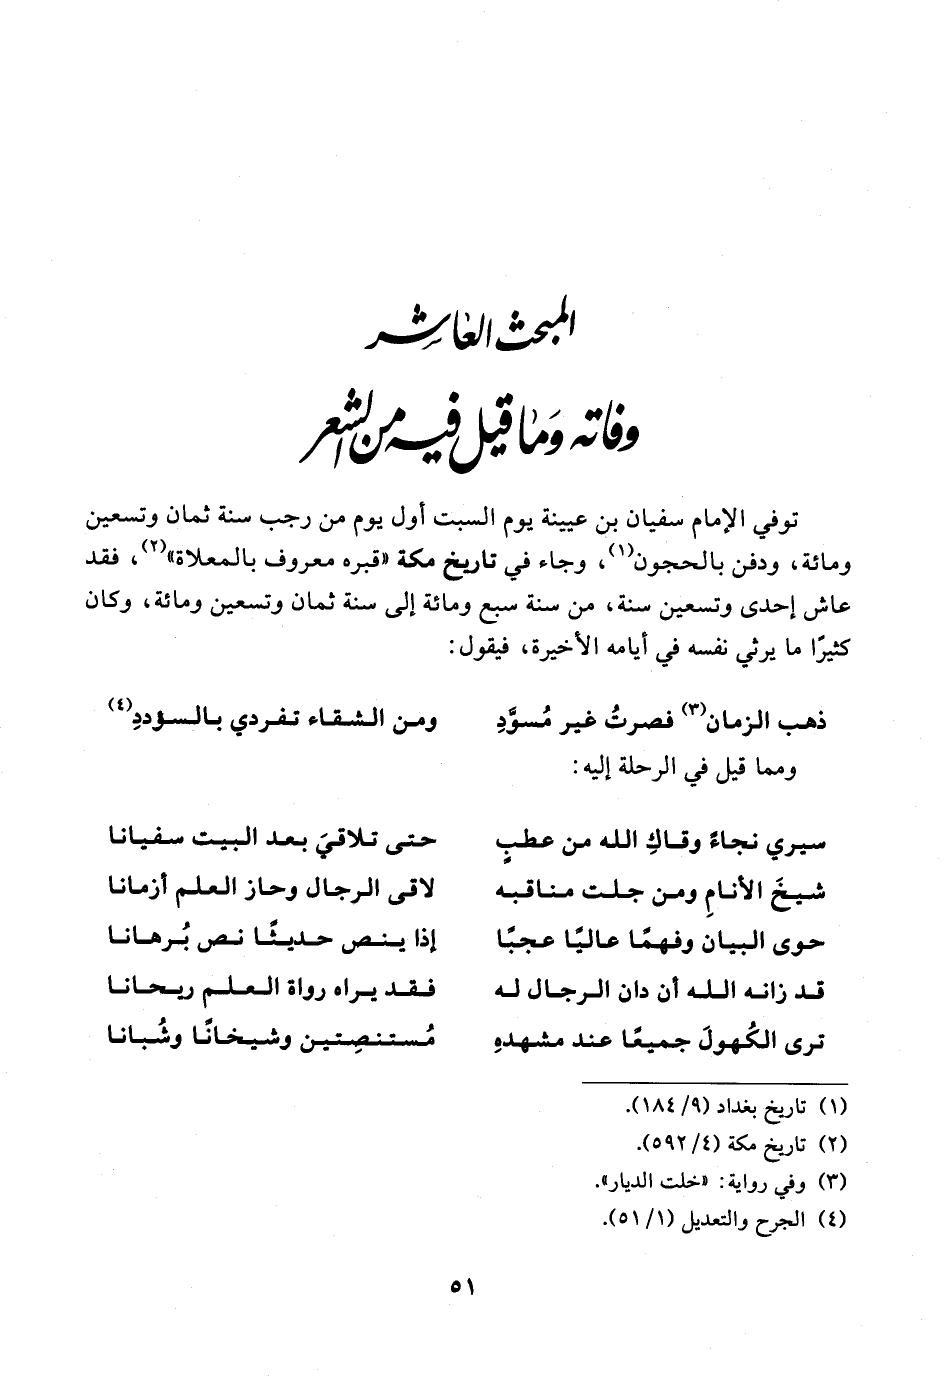 المبحث العاشر
وفاته وَما قيل فيه من الشعر
توفي الإمام سفيان بن عيينة يوم السبت أول يوم من رجب سنة ثمان وتسعين
ومائة، ودفن بالحجون(١)، وجاء في تاريخ مكة «قبره معروف بالمعلاة»(٢)، فقد
عاش إحدى وتسعين سنة، من سنة سبع ومائة إلى سنة ثمان وتسعين ومائة، وكان
كثيرًا ما يرثي نفسه في أيامه الأخيرة، فيقول:
ذهب الزمان(٣) فصرتُ غير مُسوَّدِ ومن الشقاء تفردي بالسؤددِ(٤)
ومما قيل في الرحلة إليه:
سيري نجاءً وقاكِ الله من عطبٍ حتى تلاقيَ بعد البيت سفيانا
شيخَ الأنامِ ومن جلت مناقبه لاقى الرجال وحاز العلم أزمانا
حوى البيان وفهمًا عاليًا عجبًا إذا ينص حديثًا نص بُرهانا
قد زانه الله أن دان الرجال له فقد يراه رواة العلم ريحانا
ترى الكُهولَ جميعًا عند مشهدهِ مُستنصِتين وشيخانًا وشُبانا
(١) تاريخ بغداد (٩/ ١٨٤).
(٢) تاريخ مكة (٤/ ٥٩٢).
(٣) وفي رواية: «خلت الديار».
(٤) الجرح والتعديل (١/ ٥١).
٥١